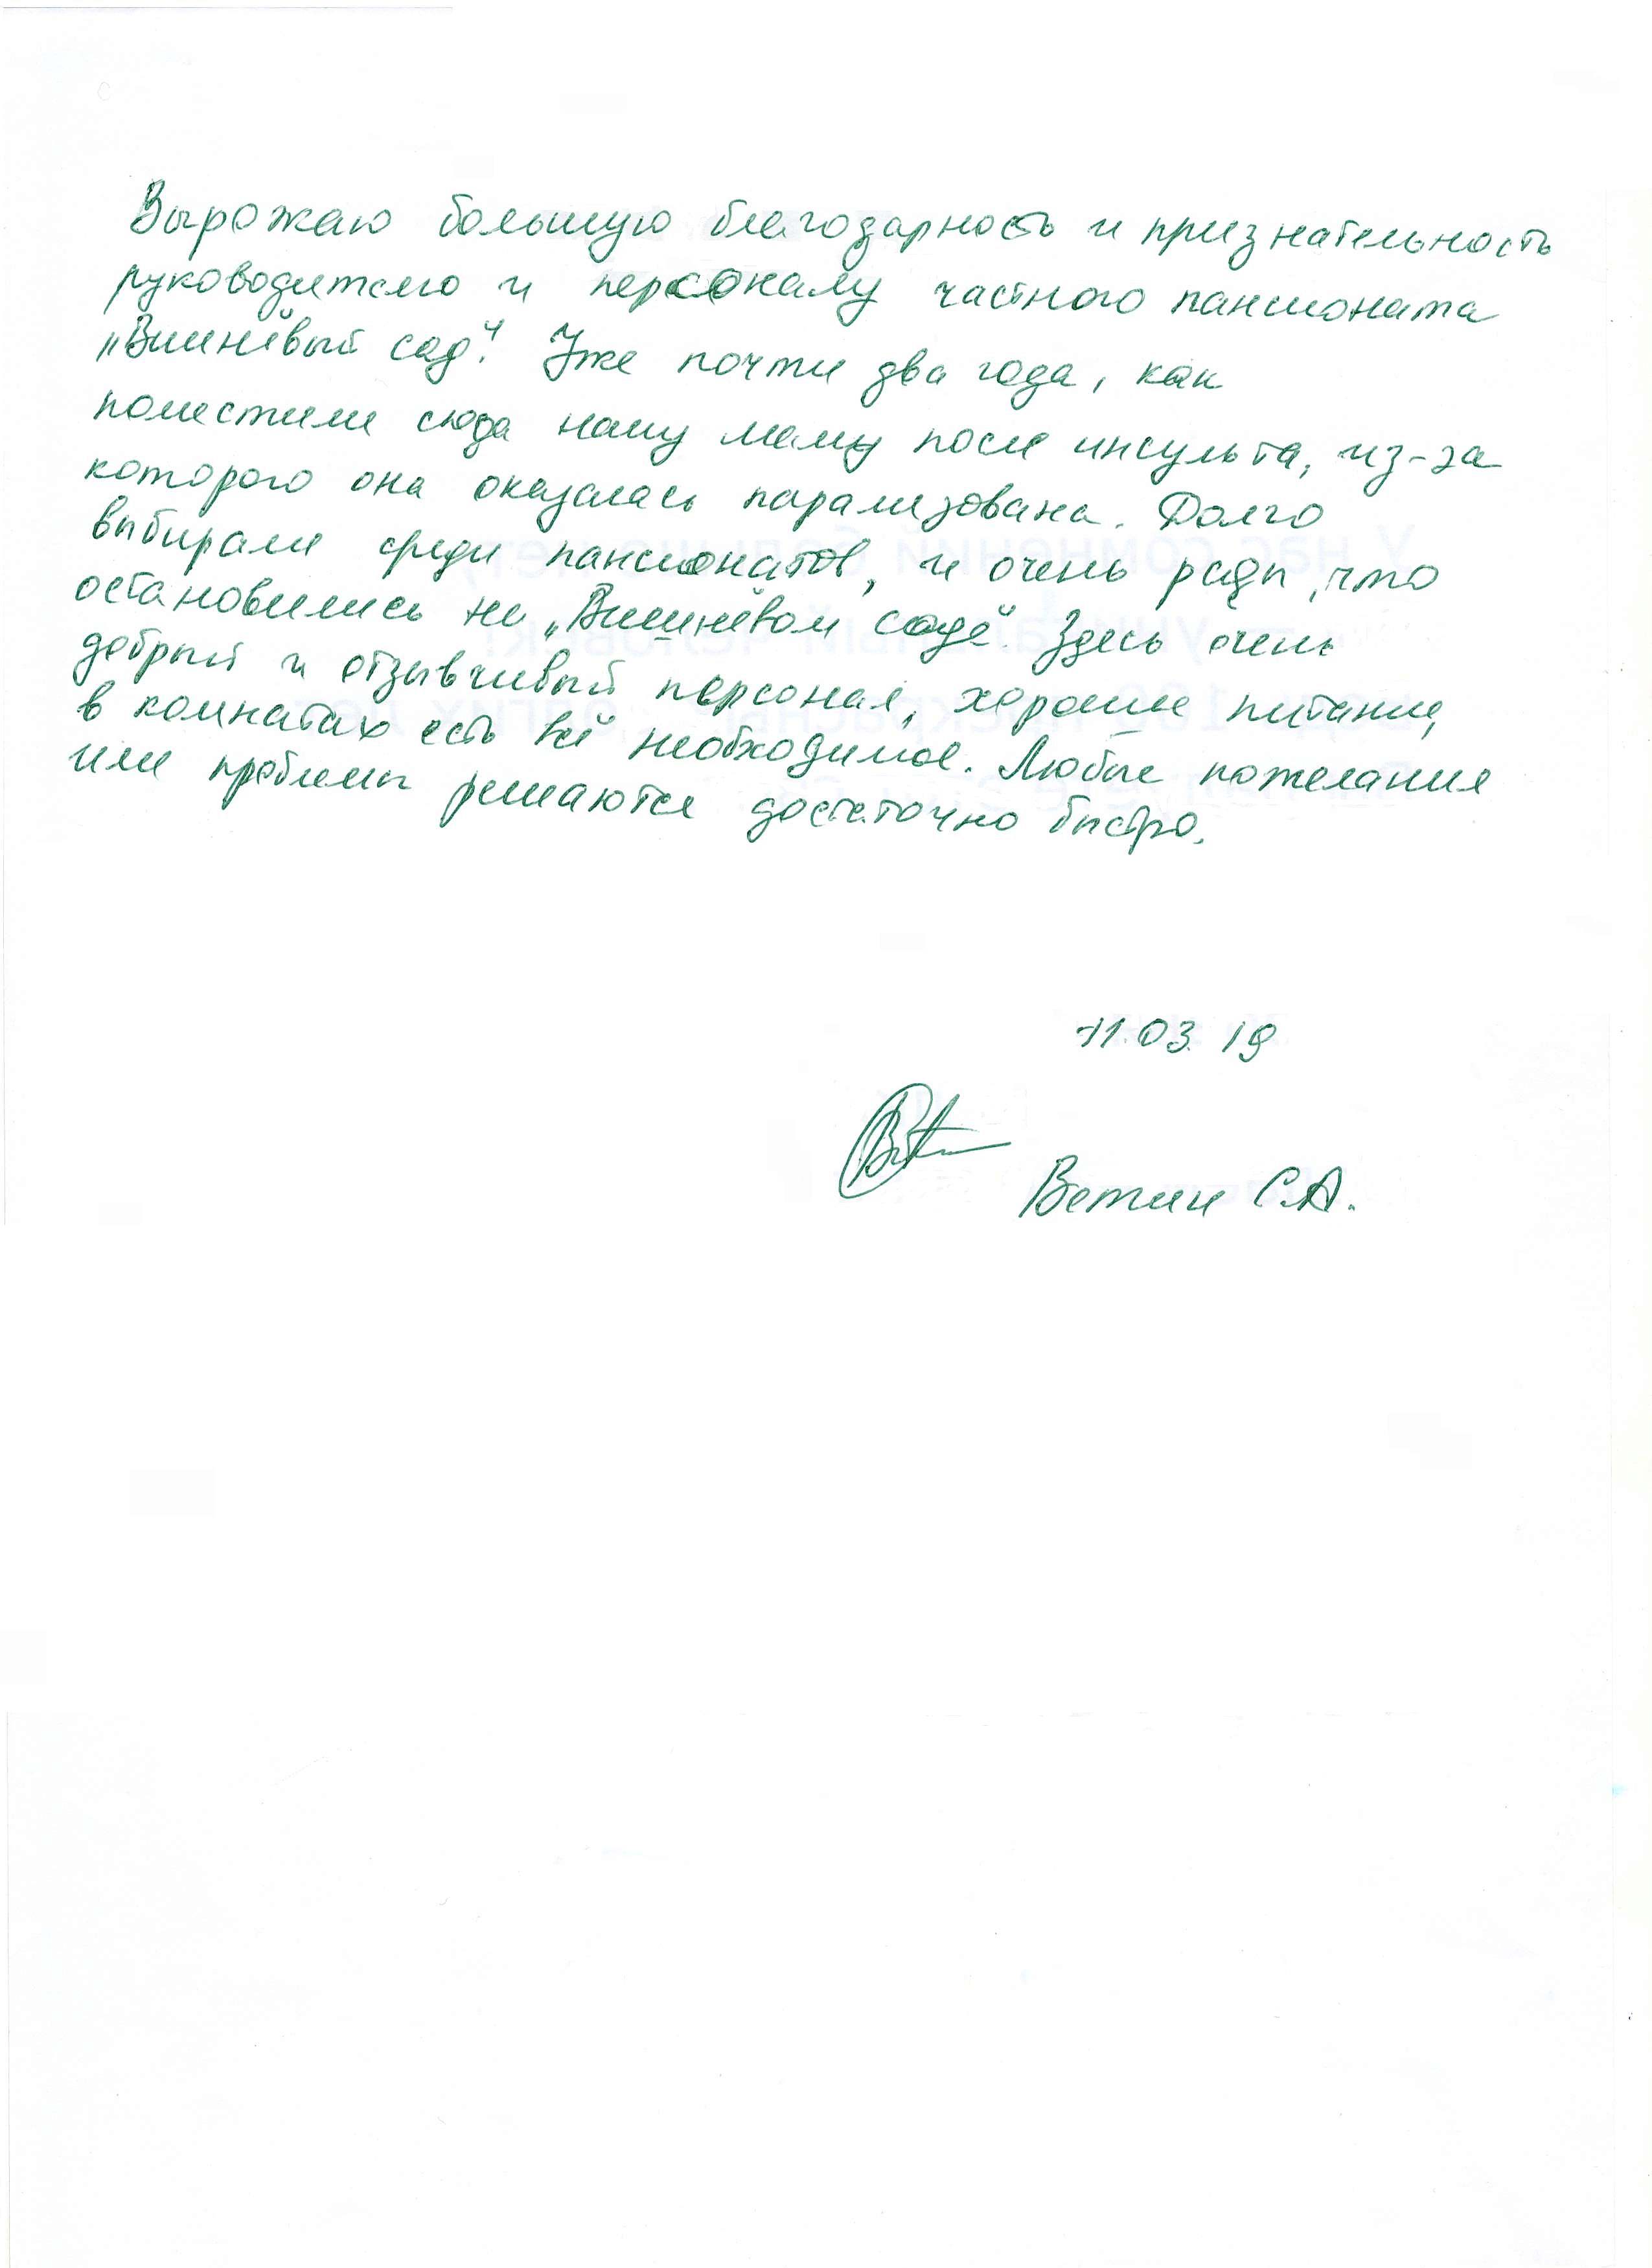 Выражаю большую благодарность и признательность
руководителю и персоналу частного пансионата
„Вишнёвый сад“. Уже почти два года, как
поместили сюда нашу маму после инсульта, из-за
которого она оказалась парализована. Долго
выбирали среди пансионатов, и очень рады, что
остановились на „Вишнёвом саде“. Здесь очень
добрый и отзывчивый персонал, хорошее питание,
в комнатах есть всё необходимое. Любые пожелания
или проблемы решаются достаточно быстро.
11.03.19
Ветин С.А.